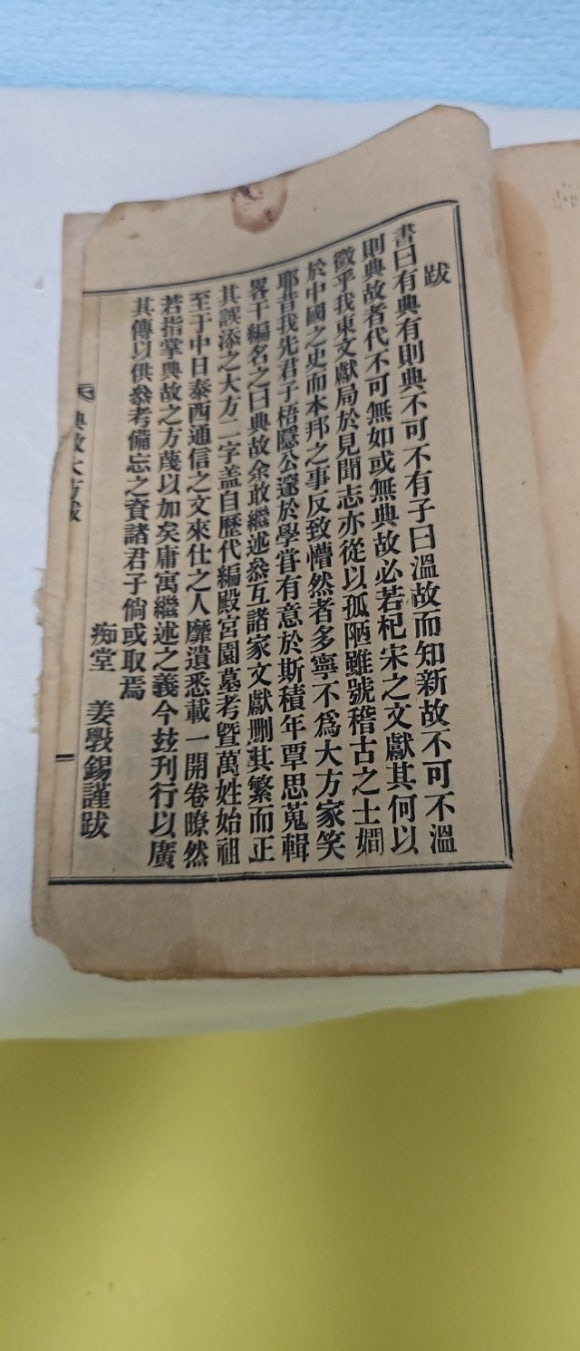 跋
書曰有典有則典不可不有子曰溫故而知新故不可不溫
則典故者代不可無如或無典故必若杞宋之文獻其何以
徵乎我東文獻局於見聞志亦從以孤陋雖號稽古之士嫺
於中國之史而本邦之事反致懵然者多寧不爲大方家笑
耶昔我先君子梧隱公邃於學甞有意於斯積年覃思蒐輯
畧干編名之曰典故余敢繼述叅互諸家文獻删其繁而正
其誤添之大方二字盖自歷代編殿宮園墓考曁萬姓始祖
至于中日泰西通信之文來仕之人靡遺悉載一開卷瞭然
若指掌典故之方蔑以加矣庸寓繼述之義今玆刊行以廣
其傳以供叅考備忘之資諸君子倘或取焉
痴堂 姜斅錫謹跋
典故大方跋
一